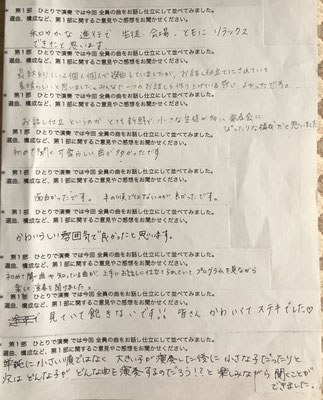 • 第1部 ひとりで演奏 では今回 全員の曲をお話し仕立にして並べてみました。
選曲、構成など、第1部に関するご意見やご感想をお聞かせください。
和やかな 進行で 生徒、会場、ともに リラックス
できたと思います。
• 第1部 ひとりで演奏 では今回 全員の曲をお話し仕立にして並べてみました。
選曲、構成など、第1部に関するご意見やご感想をお聞かせください。
個人個人が
お話し仕立てにされていて
素晴らしいと思いました。みんなで一つのお話しを作り上げている
• 第1部 ひとりで演奏 では今回 全員の曲をお話し仕立にして並べてみました。
選曲、構成など、第1部に関するご意見やご感想をお聞かせください。
お話し仕立というのが とても新鮮で 小さな生徒が多い 発表会に
ぴったりな構成だと思いました
• 第1部 ひとりで演奏 では今回 全員の曲をお話し仕立にして並べてみました。
選曲、構成など、第1部に関するご意見やご感想をお聞かせください。
初めて聞く可愛らしい曲が多かったです
• 第1部 ひとりで演奏 では今回 全員の曲をお話し仕立にして並べてみました。
選曲、構成など、第1部に関するご意見やご感想をお聞かせください。
面白かったです。 年の順ではないのが良かったです。
• 第1部 ひとりで演奏 では今回 全員の曲をお話し仕立にして並べてみました。
選曲、構成など、第1部に関するご意見やご感想をお聞かせください。
かわいらしい雰囲気で良かったと思います。
• 第1部 ひとりで演奏 では今回 全員の曲をお話し仕立にして並べてみました。
選曲、構成など、第1部に関するご意見やご感想をお聞かせください。
初めて聞く曲や知っている曲が、上手にお話し仕立になっていて プログラムを見ながら
楽しく演奏を聞けました。
• 第1部 ひとりで演奏 では今回 全員の曲をお話し仕立にして並べてみました。
選曲、構成など、第1部に関するご意見やご感想をお聞かせください。
見ていて飽きないです!! 皆さん かわいくて ステキでした♡
• 第1部 ひとりで演奏 では今回 全員の曲をお話し仕立にして並べてみました。
選曲、構成など、第1部に関するご意見やご感想をお聞かせください。
単純に小さい順ではなく、大きい子が演奏した後に小さな子だったりと
次は どんな子が どんな曲を演奏するのだろう!?と 楽しみながら 聞くことが
できました。